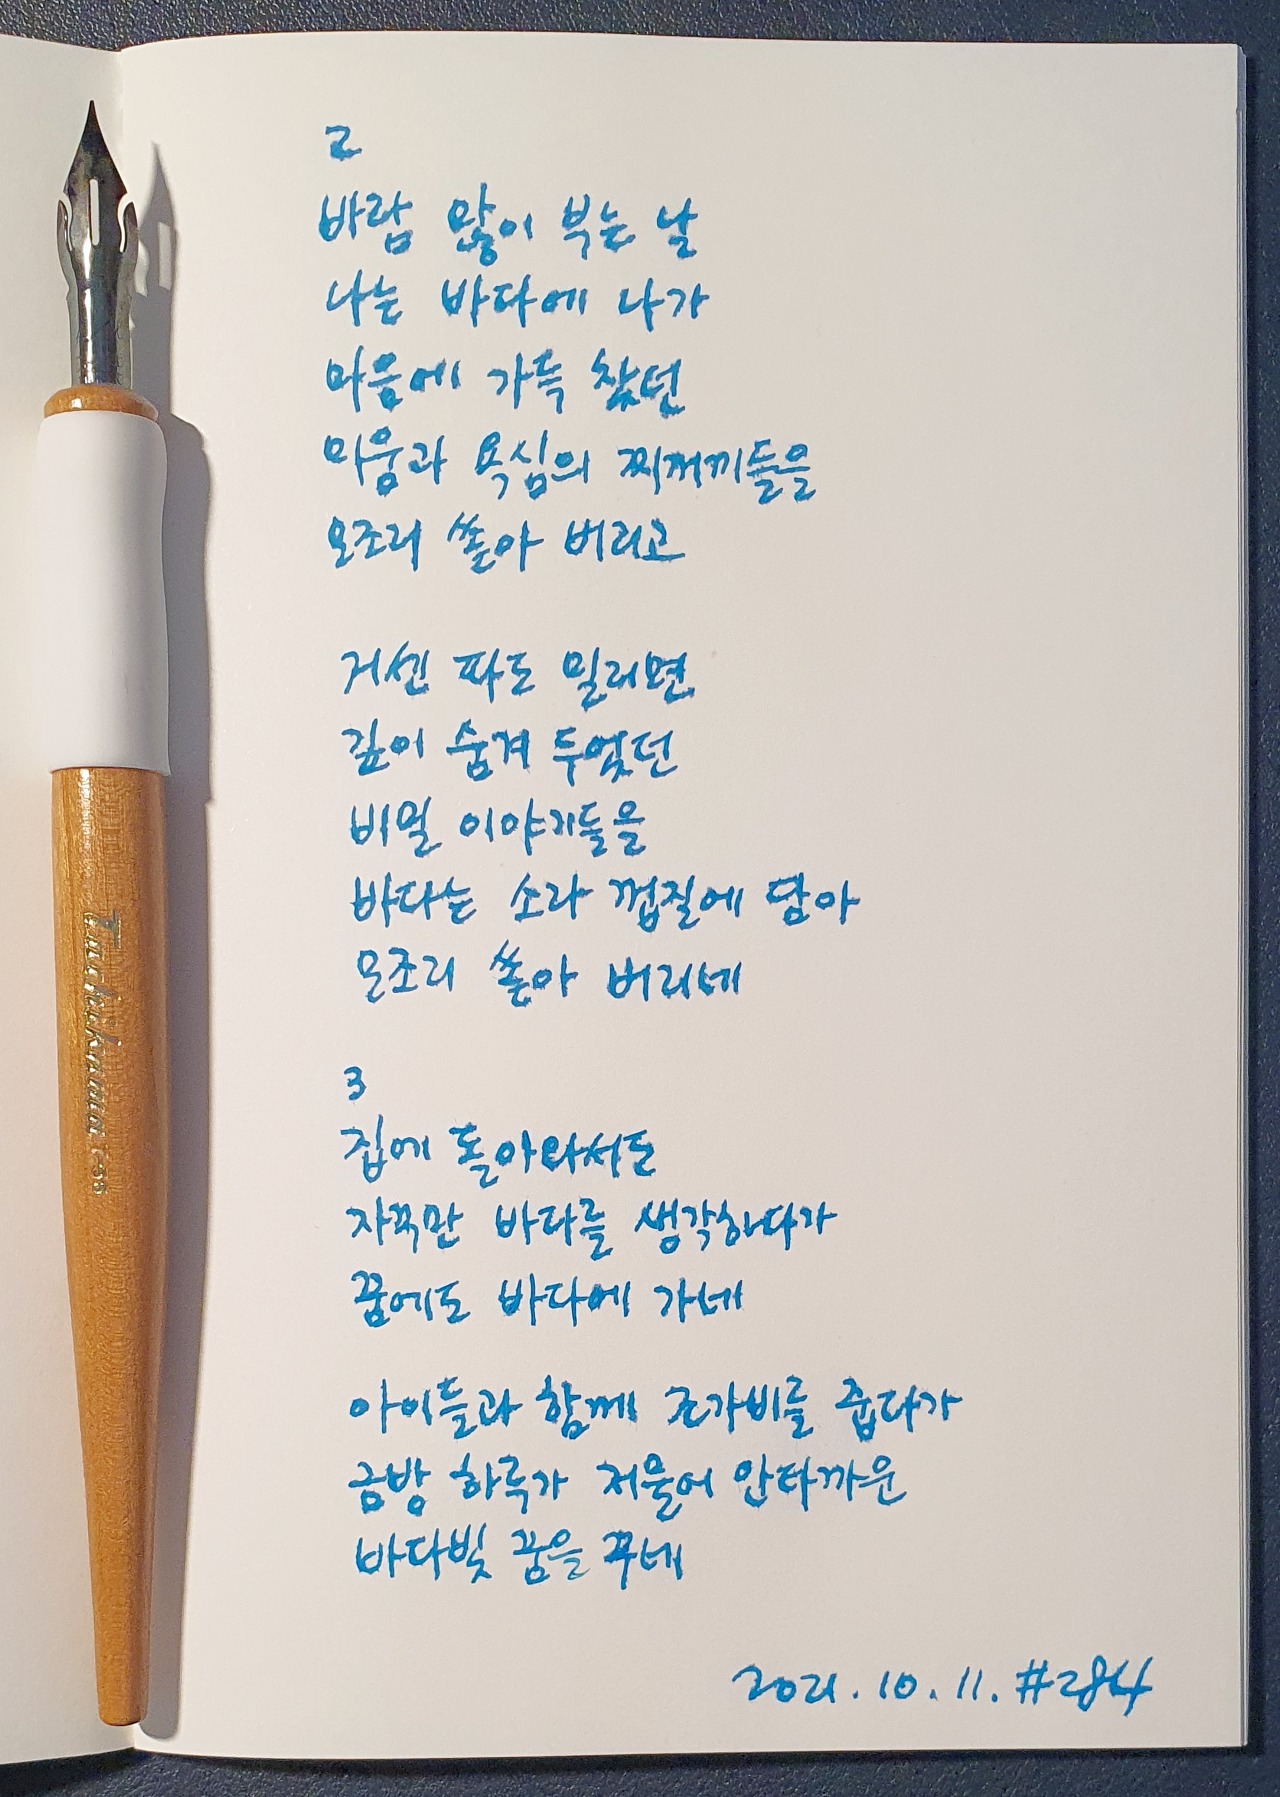 2
바람 많이 부는 날
나는 바다에 나가
마음에 가득 찼던
미움과 욕심의 찌꺼기들을
모조리 쏟아 버리고
거센 파도 밀리면
깊이 숨겨 두었던
비밀 이야기들을
바다는 소라 껍질에 담아
모조리 쏟아 버리네
3
집에 돌아와서도
자꾸만 바다를 생각하다가
꿈에도 바다에 가네
아이들과 함께 조가비를 줍다가
금방 하루가 저물어 안타까운
바다빛 꿈을 꾸네
2021.10.11. #284
Tachikawa T-36